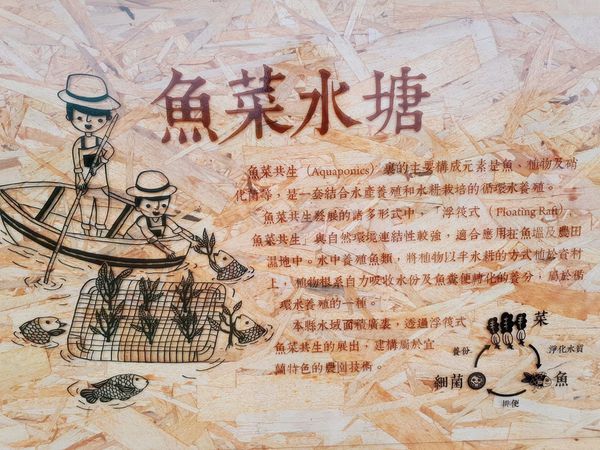 魚菜水塘
魚菜共生（Aquaponics）裏的主要構成元素是魚、植物及硝
化菌等，是一套結合水產養殖和水耕栽培的循環水養殖。
魚菜共生發展的諸多形式中，「浮筏式（Floating Raft）
魚菜共生」與自然環境連結性較強，適合應用在魚塭及農田
濕地中。水中養殖魚類，將植物以半水耕的方式植於資材
上，植物根系自力吸收水份及魚糞便轉化的養分，屬於循
環水養殖的一種。
本縣水域面積廣袤，透過浮筏式
魚菜共生的展出，建構屬於宜
蘭特色的農園技術。
菜
養份
淨化水質
細菌
魚
排便